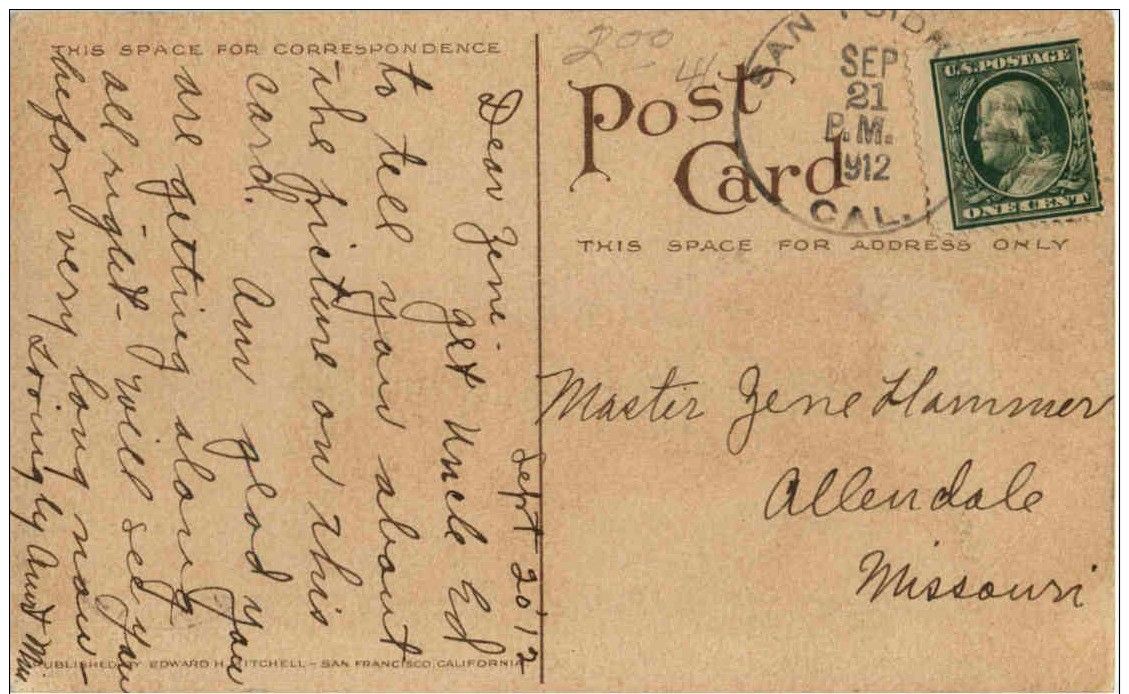 THIS SPACE FOR CORRESPONDENCE
Sept 20 12
Dear Zene
get Uncle Ed
to tell you about
the picture on this
card. Am glad you
are getting along
all right - will see you
before very long now -
Lovingly Aunt
PUBLISHED BY EDWARD H. MITCHELL - SAN FRANCISCO, CALIFORNIA
200
Post
Card
SAN
SEP
21
P.M.
1912
CAL.
U.S. POSTAGE
ONE CENT
THIS SPACE FOR ADDRESS ONLY
Master Zene Hammer
Allendale
Missouri